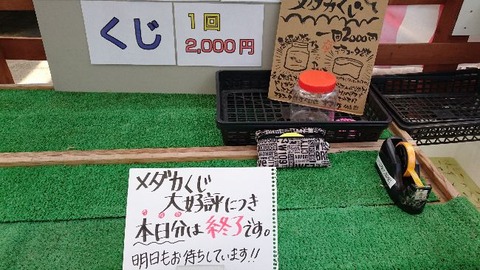 くじ
1回
2,000円
メダカくじ
一回2000円
メダカくじ
大好評につき
本日分は終了です。
明日もお待ちしています!!